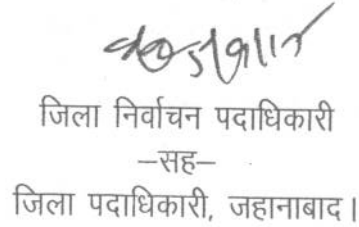 जिला निर्वाचन पदाधिकारी
–सह–
जिला पदाधिकारी, जहानाबाद।